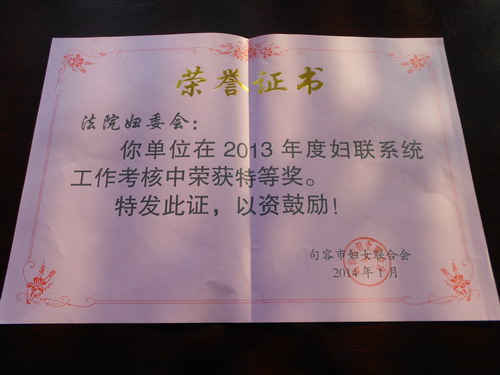 荣誉证书
法院妇委会：
你单位在 2013 年度妇联系统
工作考核中荣获特等奖。
特发此证，以资鼓励！
句容市妇女联合会
2014 年 1 月